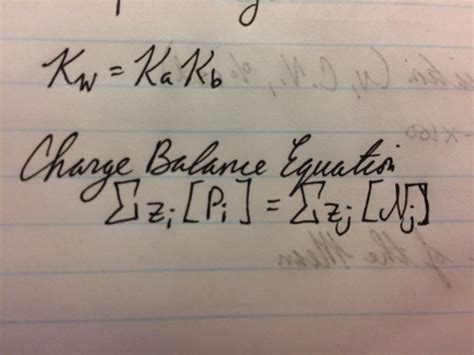 Kw = KaKb
Charge Balance Equation
Σzᵢ[Pᵢ] = Σzⱼ[Nⱼ]